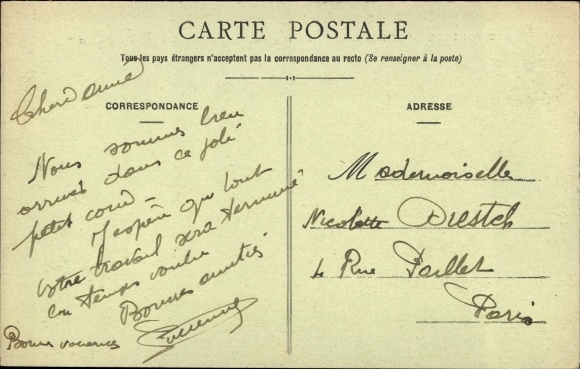 CARTE POSTALE
Tous les pays étrangers n'acceptent pas la correspondance au recto (Se renseigner à la poste)
CORRESPONDANCE
Nous sommes bien
arrivés dans ce joli
petit coin
J'espère que tout
votre travail sera terminé
en temps voulu
Bonnes amitiés
Bonnes vacances
ADRESSE
Mademoiselle
Nicolette
4 Rue Paillet
Paris